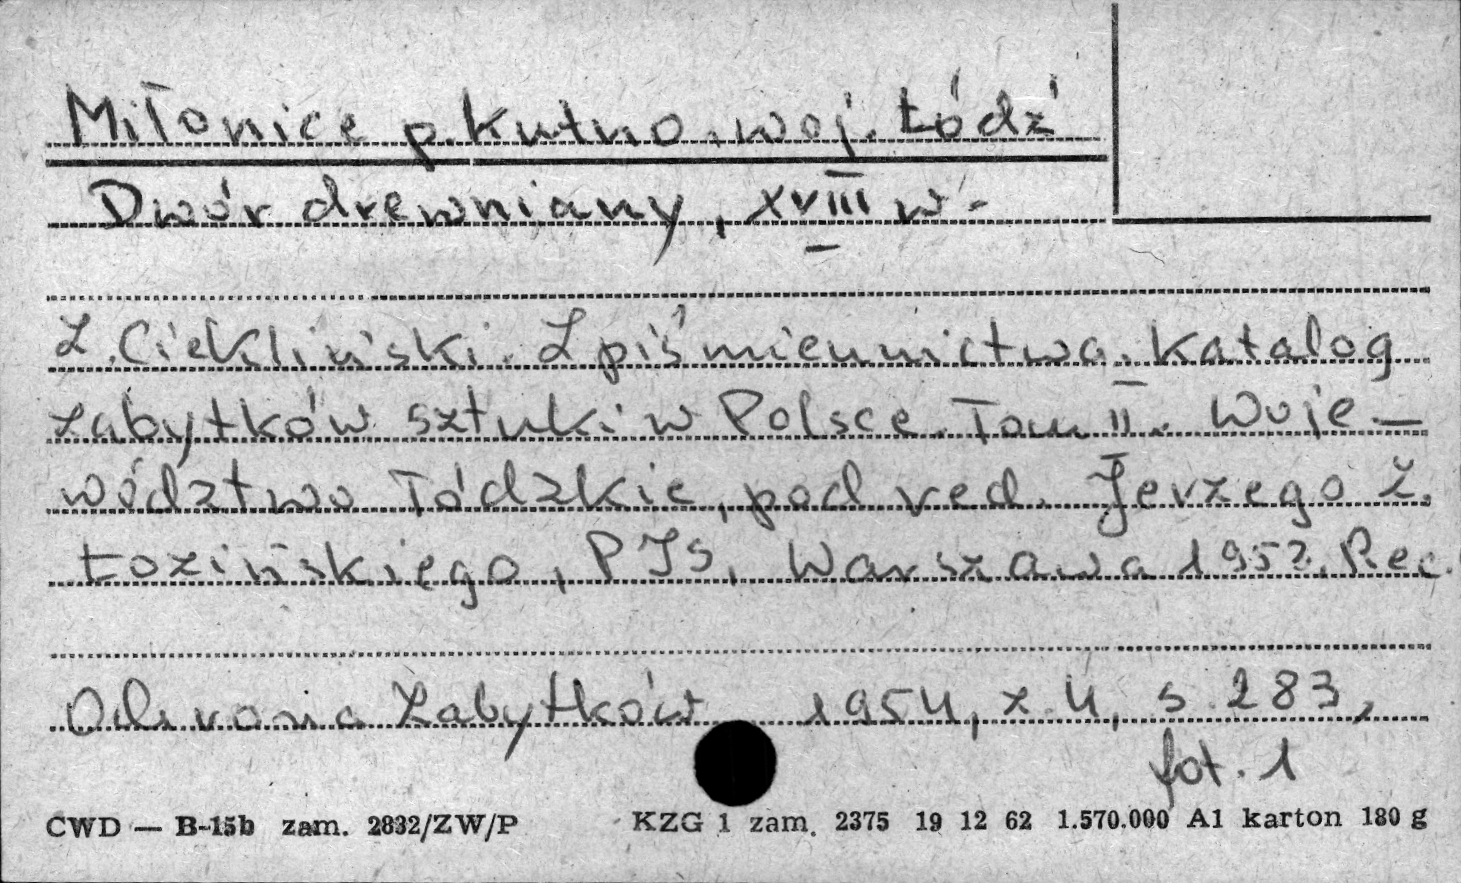 Miłonice p. Kutno, woj. Łódź
Dwór drewniany, XVIII w.
Z. Ciekliński. Z piśmiennictwa. Katalog
zabytków sztuki w Polsce. Tom II. Woje-
wództwo łódzkie, pod red. Jerzego Z.
Łozińskiego, PIS, Warszawa 1953. Rec.
Ochrona Zabytków 1954, z. 4, s. 283,
fot. 1
CWD — B-15b zam. 2832/ZW/P KZG 1 zam. 2375 19 12 62 1.570.000 A1 karton 180 g